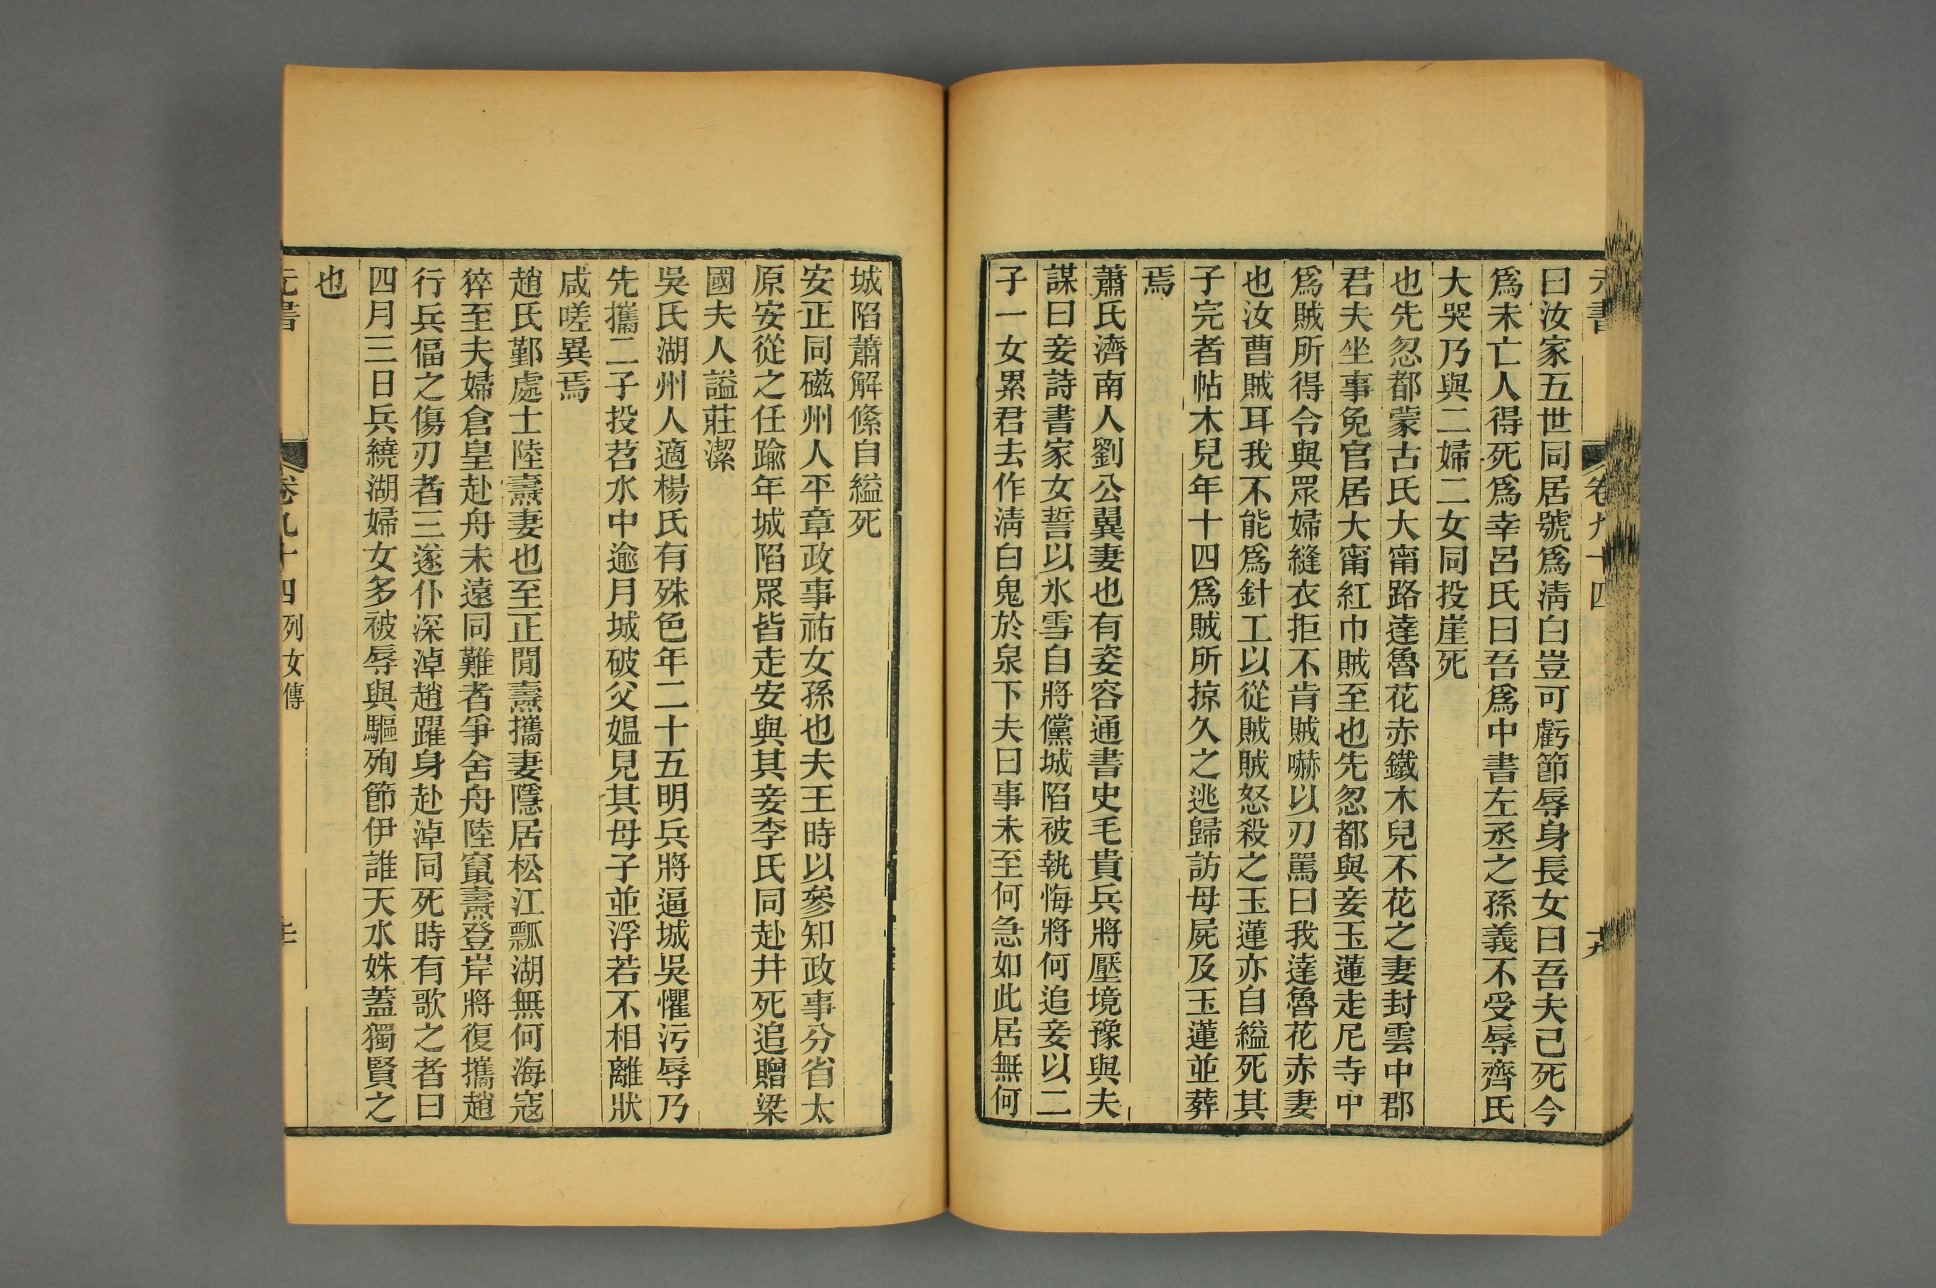 元書 卷九十四 十九
曰汝家五世同居號爲淸白豈可虧節辱身長女曰吾夫己死今
爲未亡人得死爲幸呂氏曰吾爲中書左丞之孫義不受辱齊氏
大哭乃與二婦二女同投崖死
也先忽都蒙古氏大甯路達魯花赤鐵木兒不花之妻封雲中郡
君夫坐事免官居大甯紅巾賊至也先忽都與妾玉蓮走尼寺中
爲賊所得令與眾婦縫衣拒不肯賊嚇以刃罵曰我達魯花赤妻
也汝曹賊耳我不能爲針工以從賊賊怒殺之玉蓮亦自縊死其
子完者帖木兒年十四爲賊所掠久之逃歸訪母屍及玉蓮並葬
焉
蕭氏濟南人劉公翼妻也有姿容通書史毛貴兵將壓境豫與夫
謀曰妾詩書家女誓以氷雪自將儻城陷被執悔將何追妾以二
子一女累君去作淸白鬼於泉下夫曰事未至何急如此居無何
城陷蕭解絛自縊死
安正同磁州人平章政事祐女孫也夫王時以參知政事分省太
原安從之任踰年城陷眾皆走安與其妾李氏同赴井死追贈梁
國夫人謚莊潔
吳氏湖州人適楊氏有殊色年二十五明兵將逼城吳懼污辱乃
先攜二子投苕水中逾月城破父媼見其母子並浮若不相離狀
咸嗟異焉
趙氏鄞處士陸燾妻也至正閒燾攜妻隱居松江瓢湖無何海寇
猝至夫婦倉皇赴舟未遠同難者爭舍舟陸竄燾登岸將復攜趙
行兵傴之傷刃者三遂仆深淖趙躍身赴淖同死時有歌之者曰
四月三日兵繞湖婦女多被辱與驅殉節伊誰天水姝蓋獨賢之
也
元書 卷九十四 列女傳